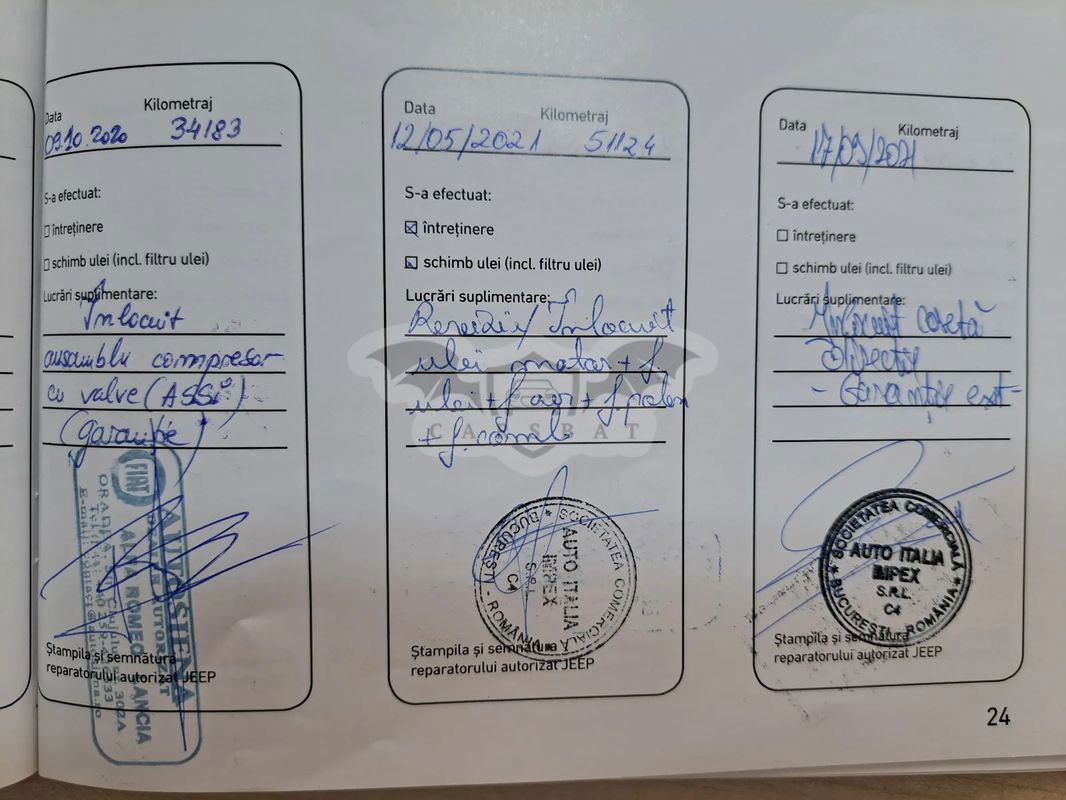 Data Kilometraj
09.10.2020 34183
S-a efectuat:
întreținere
schimb ulei (incl. filtru ulei)
Lucrări suplimentare:
Înlocuit
ansamblu compresor
cu valve (ASSY)
(garanție)
FIAT
ALFA ROMEO LANCIA
Ștampila și semnătura
reparatorului autorizat JEEP
Data Kilometraj
12/05/2021 51124
S-a efectuat:
întreținere
schimb ulei (incl. filtru ulei)
Lucrări suplimentare:
Revizie / Înlocuit
ulei motor + f.
ulei + f. aer + f. polen
+ f. comb
SOCIETATEA COMERCIALĂ
AUTO ITALIA
IMPEX
S.R.L.
C4
BUCUREȘTI - ROMÂNIA
Ștampila și semnătura
reparatorului autorizat JEEP
Data Kilometraj
17/09/2021
S-a efectuat:
întreținere
schimb ulei (incl. filtru ulei)
Lucrări suplimentare:
Înlocuit casetă
direcție
- Garanție ext -
SOCIETATEA COMERCIALĂ
AUTO ITALIA
IMPEX
S.R.L.
C4
BUCUREȘTI - ROMÂNIA
Ștampila și semnătura
reparatorului autorizat JEEP
24
CARSBAT